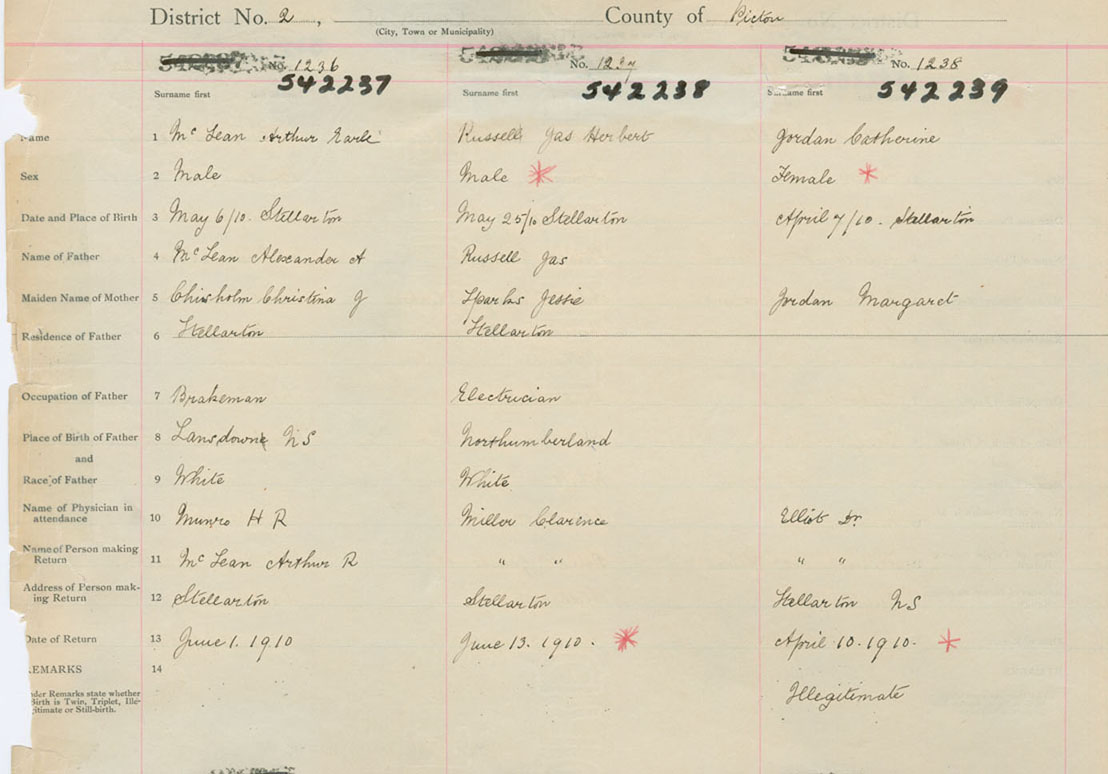 District No. 2, County of Pictou
(City, Town or Municipality)
No. 1236 No. 1237 No. 1238
542237 542238 542239
Surname first Surname first Surname first
Name 1 McLean Arthur Earle Russell Jas Herbert Jordan Catherine
Sex 2 Male Male Female
Date and Place of Birth 3 May 6/10. Stellarton May 25/10 Stellarton April 7/10. Stellarton
Name of Father 4 McLean Alexander A Russell Jas
Maiden Name of Mother 5 Chisholm Christina J Sparks Jessie Jordan Margaret
Residence of Father 6 Stellarton Stellarton
Occupation of Father 7 Brakeman Electrician
Place of Birth of Father 8 Lansdowne NS Northumberland
and
Race of Father 9 White White
Name of Physician in
attendance 10 Munro H R Miller Clarence Elliot Dr
Name of Person making
Return 11 McLean Arthur R " " " "
Address of Person mak-
ing Return 12 Stellarton Stellarton Stellarton NS
Date of Return 13 June 1. 1910 June 13. 1910. April 10. 1910.
REMARKS 14
Under Remarks state whether
Birth is Twin, Triplet, Ille-
gitimate or Still-birth. Illegitimate